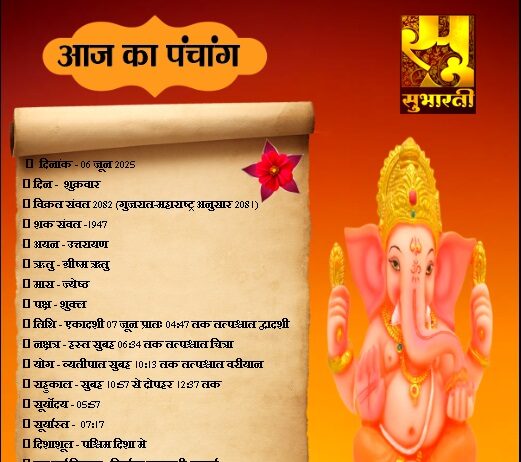 आज का पंचांग
सुभारती
दिनाक - 06 जून 2025
दिन - शुक्रवार
विक्रत संवत 2082 (गुजरात-महाराष्ट्र अनुसार 2081)
शक संवत -1947
अयन - उत्तरायण
ऋतु - ग्रीष्म ऋतु
मास - ज्येष्ठ
पक्ष - शुक्ल
तिथि - एकादशी 07 जून प्रातः 04:47 तक तत्पश्चात द्वादशी
नक्षत्र - हस्त सुबह 06:34 तक तत्पश्चात चित्रा
योग - व्यतीपात सुबह 10:13 तक तत्पश्चात वरीयान
राहुकाल - सुबह 10:57 से दोपहर 12:37 तक
सूर्योदय - 05:57
सूर्यास्त - 07:17
दिशाशूल - पश्चिम दिशा मे